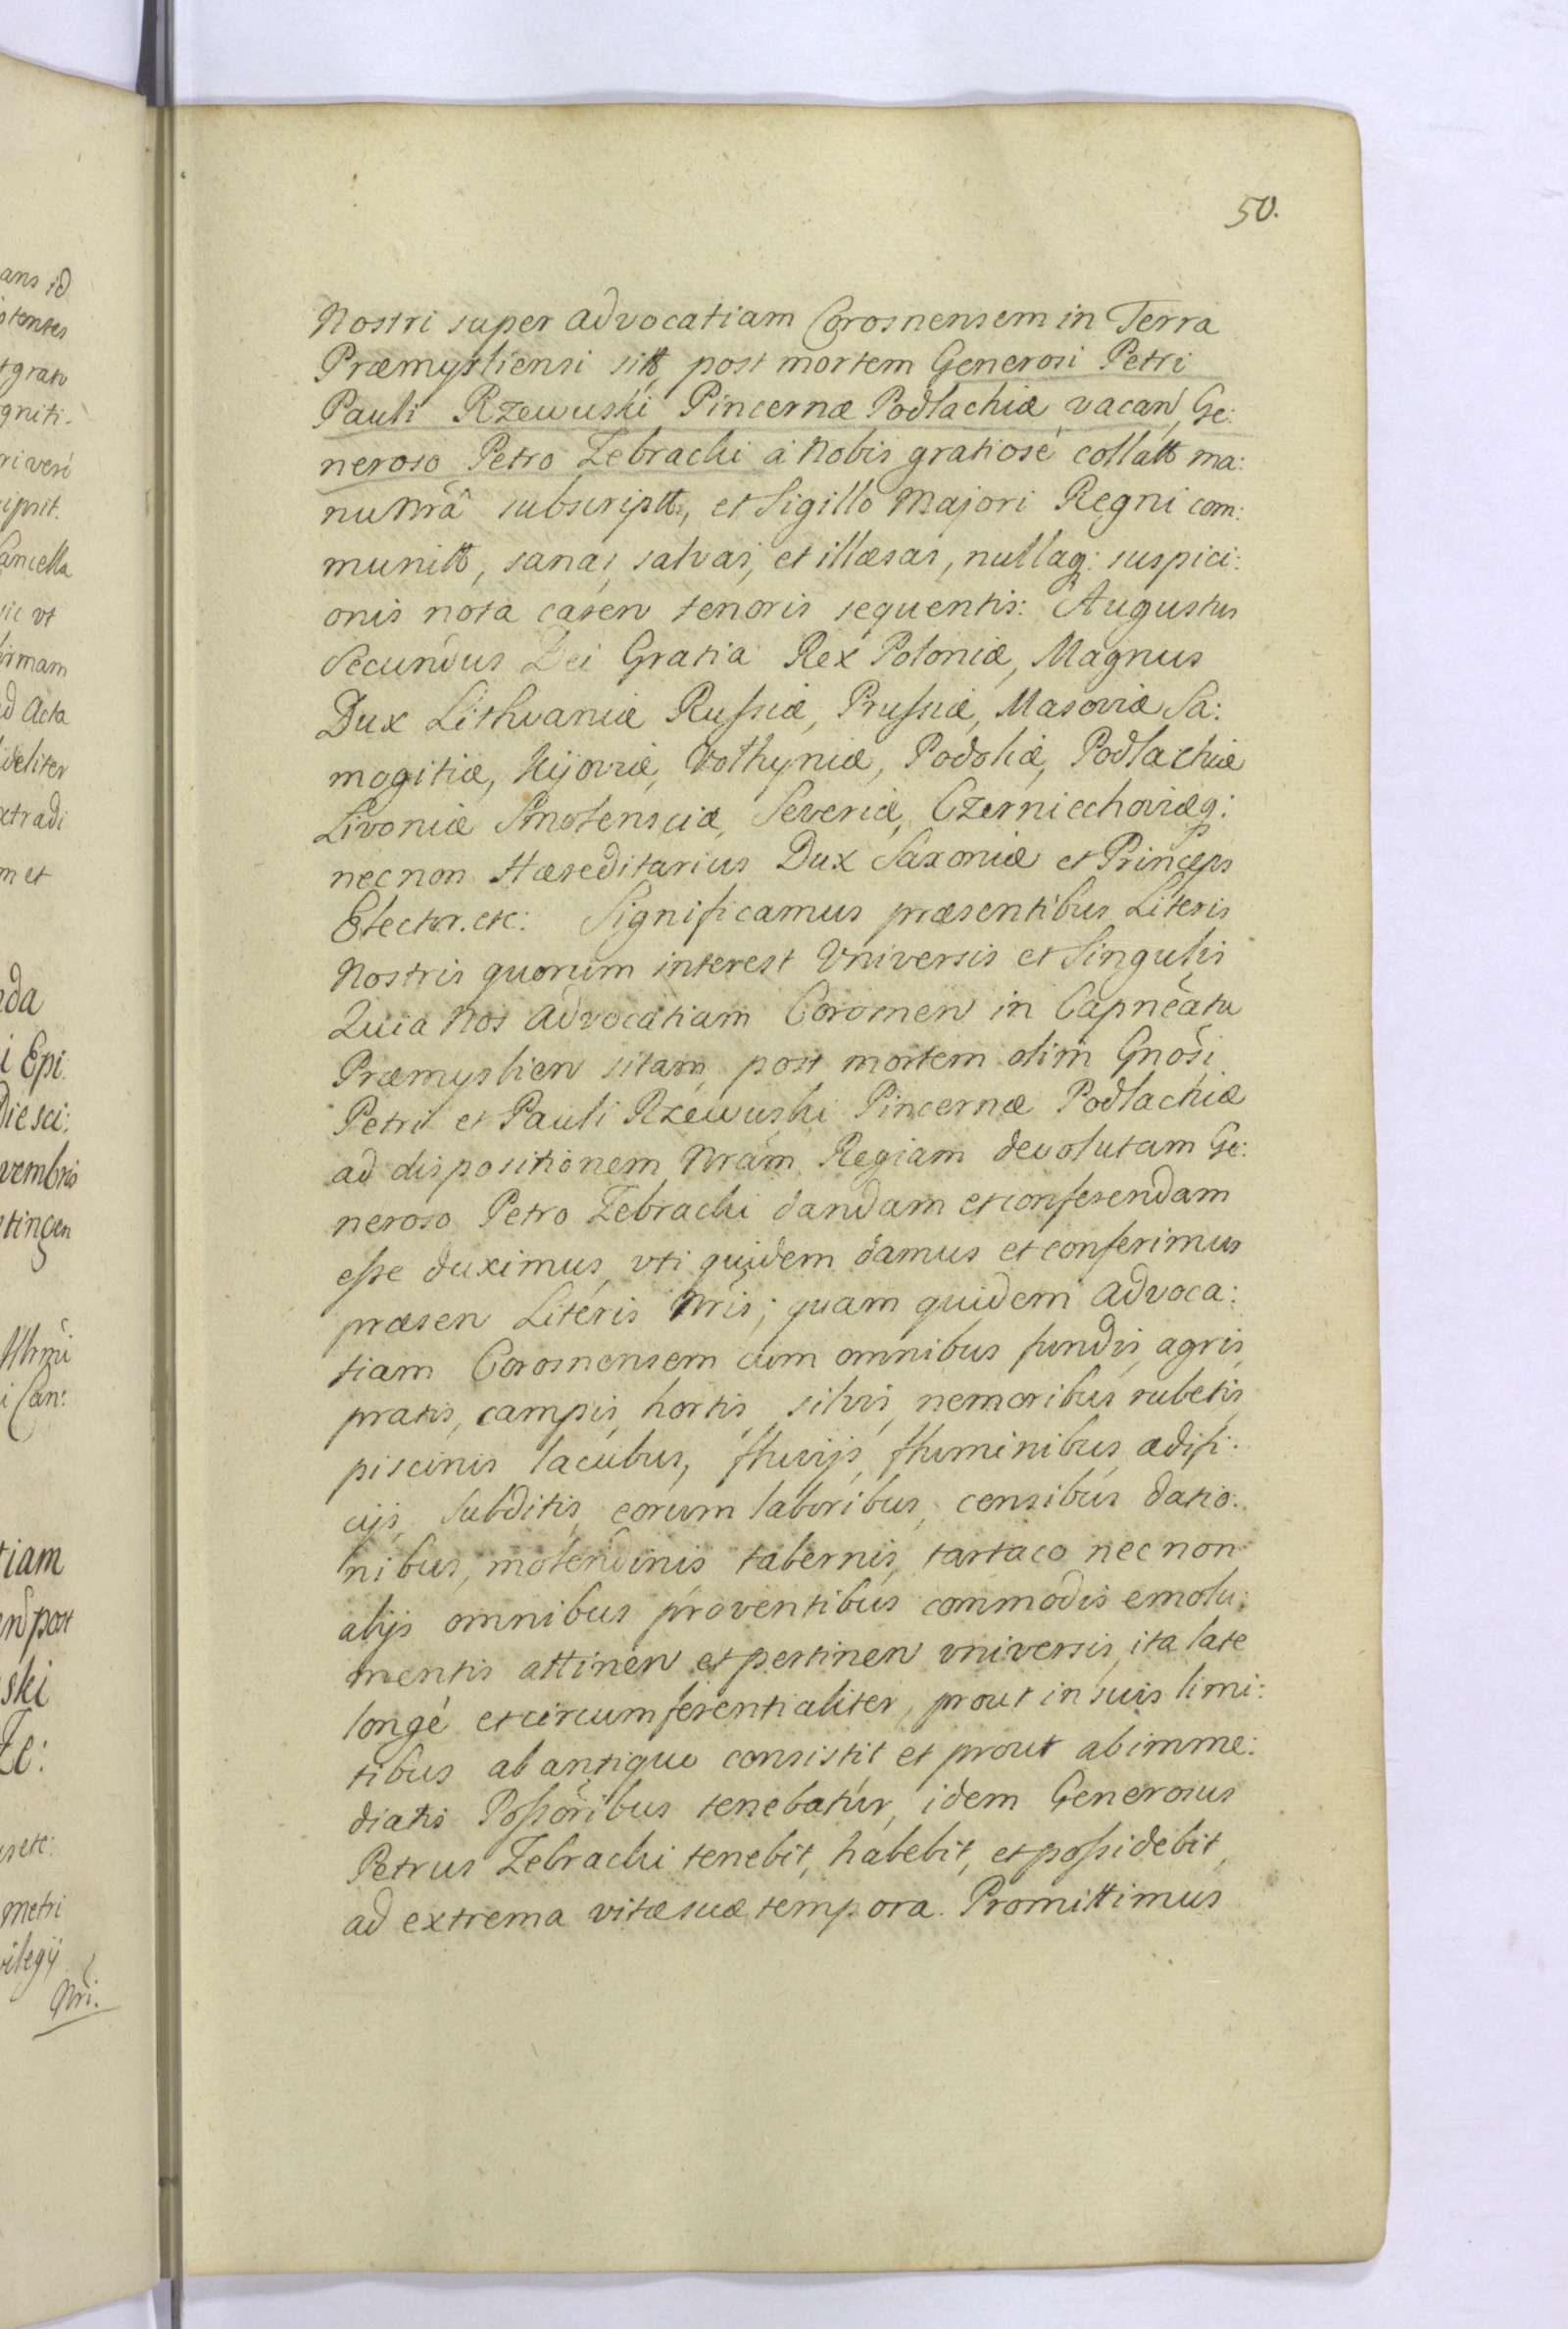 50.
Nostri super advocatiam Corosnensem in Terra
Præmysliensi sitt post mortem Generosi Petri
Pauli Rzewuski Pincernæ Podlachiæ vacan, Ge:
neroso Petro Zebracki á Nobis gratiosé collatt ma:
nu Nrâ subscriptt, et Sigillo Majori Regni com:
munitt, sanas, salvas, et illæsas, nullaq: suspici:
onis nota caren tenoris sequentis: Augustus
Secundus Dei Gratia Rex Poloniæ, Magnus
Dux Lithvaniæ Russiæ, Prussiæ, Masoviæ Sa:
mogitiæ, Kijoviæ, Volhyniæ, Podoliæ, Podlachiæ
Livoniæ Smolensciæ, Severiæ, Czerniechoviæq:
nec non Hæreditarius Dux Saxoniæ et Princeps
Elector. etc: Significamus præsentibus Literis
Nostris quorum interest Vniversis et Singulis
Quia Nos Advocatiam Corosnen in Capneatu
Præmyslien sitam, post mortem olim Gnosi
Petri et Pauli Rzewuski Pincernæ Podlachiæ
ad dispositionem Nram Regiam devolutam Ge:
neroso Petro Zebracki dandam et conferendam
esse duximus, vti quidem damus et conferimus
præsen Literis Nris; quam quidem advoca:
tiam Corosnensem cum omnibus fundis, agris,
pratis, campis, hortis, silvis, nemoribus rubetis,
piscinis lacubus, fluvijs, fluminibus, ædifi:
cijs, Subditis, eorum laboribus, censibus datio:
nibus, molendinis tabernis, tartaco nec non
alijs omnibus proventibus commodis emolu:
mentis attinen et pertinen vniversis, ita late
longé et circumferentialiter, prout in suis limi:
tibus ab antiquo consistit et prout ab imme:
diatis Possoribus tenebatur, idem Generosus
Petrus Zebracki tenebit, habebit, et possidebit,
ad extrema vitæ suæ tempora. Promittimus